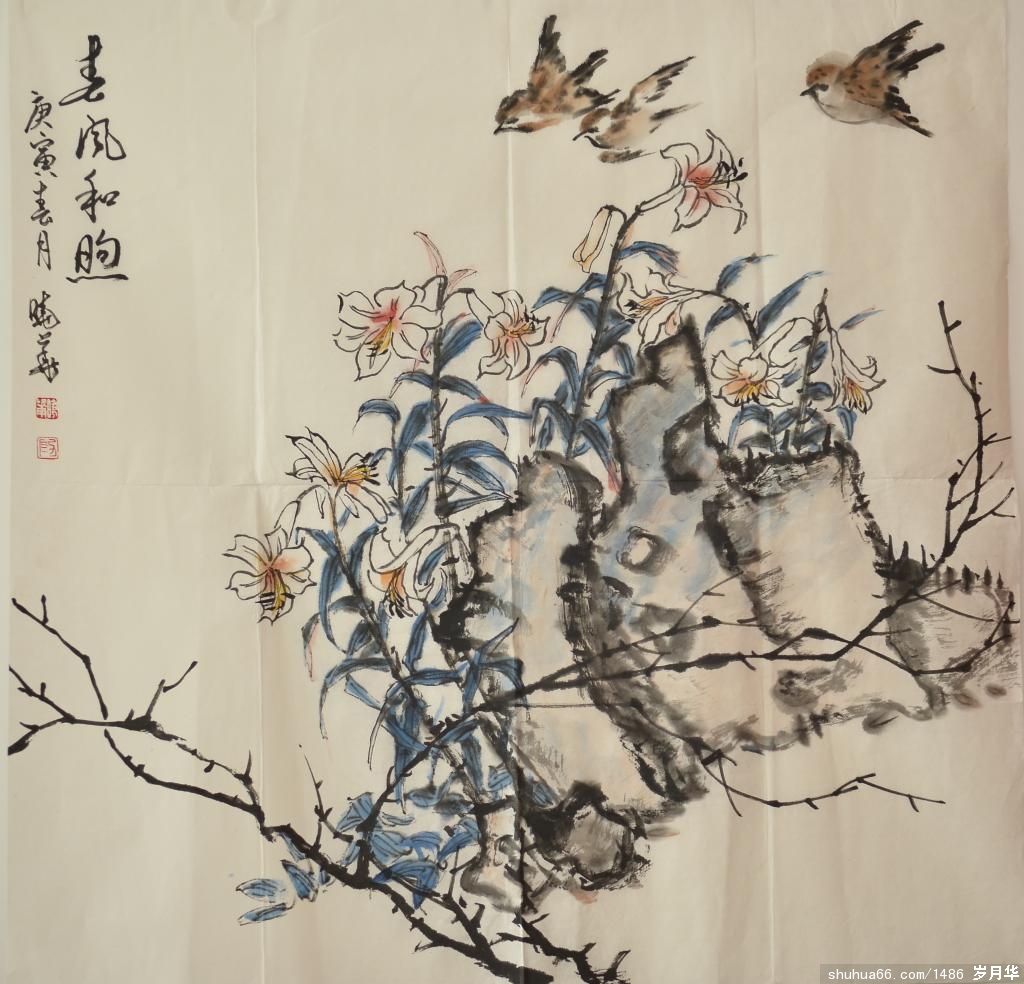 春风和煦
庚寅春月 晓华
shuhua66.com/1486 岁月华